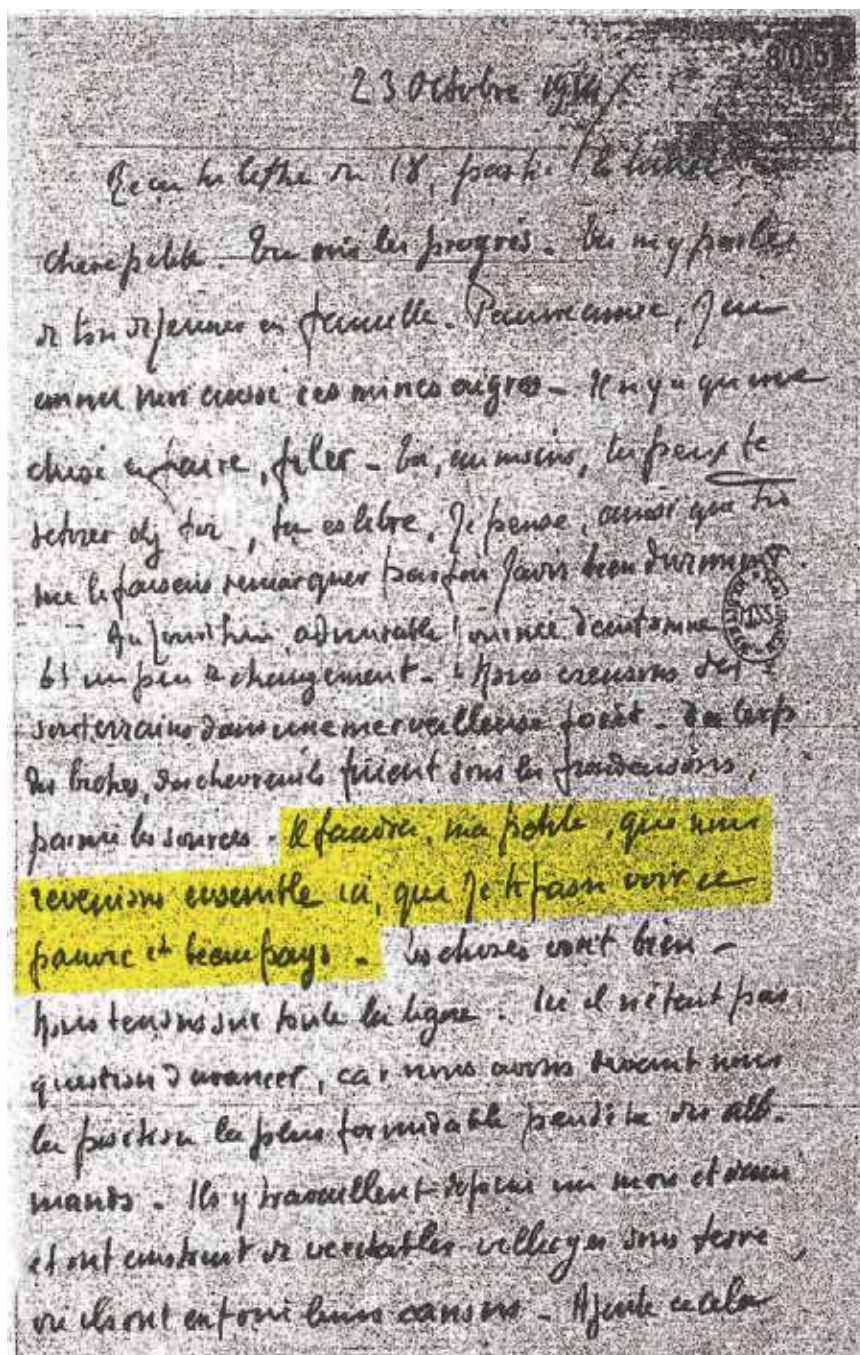 805
23 Octobre 1914
Reçu ta lettre du 18, partie le
chère petite. Tu vois les progrès. Tu m'y parles
de ton déjeuner en famille. Pauvre amie, j'ai
connu moi aussi ces mines aigres - Il n'y a qu'une
chose à faire, filer - Toi, au moins, tu peux te
retirer chez toi, tu es libre, je pense, ainsi que tu
me le faisais remarquer parfois j'avais bien
Aujourd'hui, admirable journée d'automne
Et un peu de changement - Nous creusons des
souterrains dans une merveilleuse forêt - Des cerfs
des biches, des chevreuils fuient sous les frondaisons,
parmi les sources - Il faudra, ma petite, que nous
revenions ensemble ici, que je te fasse voir ce
pauvre et beau pays - Les choses vont bien -
Nous tenons sur toute la ligne. Ici il n'était pas
question d'avancer, car nous avons devant nous
la position la plus formidable des alle-
mands - Ils y travaillent depuis un mois et demi
et ont construit de véritables villages sous terre,
où ils ont enfoui leurs canons - Ajoute à cela